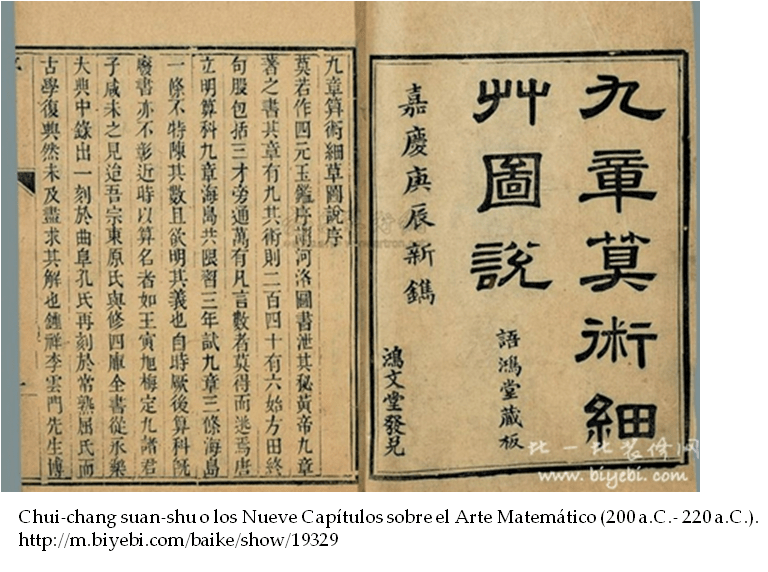 九章算術細
艸圖說
語鴻堂藏板
嘉慶庚辰新鐫
鴻文堂發兌
九章筭術細草圖說序
莫若作四元玉鑑序謂河洛圖書泄其秘黃帝九章
著之書其章有九其術則二百四十有六始方田終
句股包括三才旁通萬有凡言數者莫得而逃焉唐
立明算科九章海島共限習三年試九章三條海島
一條不特陳其數且欲明其義也自時厥後算科既
廢書亦不彰近時以算名者如王寅旭梅定九諸君
子咸未之見迨吾宗東原氏與修四庫全書從永樂
大典中錄出一刻於曲阜孔氏再刻於常熟屈氏而
古學復興然未及盡求其解也鍾祥李雲門先生博
比一比装修网
www.biyebi.com
Chui-chang suan-shu o los Nueve Capítulos sobre el Arte Matemático (200 a.C.- 220 a.C.).
http://m.biyebi.com/baike/show/19329